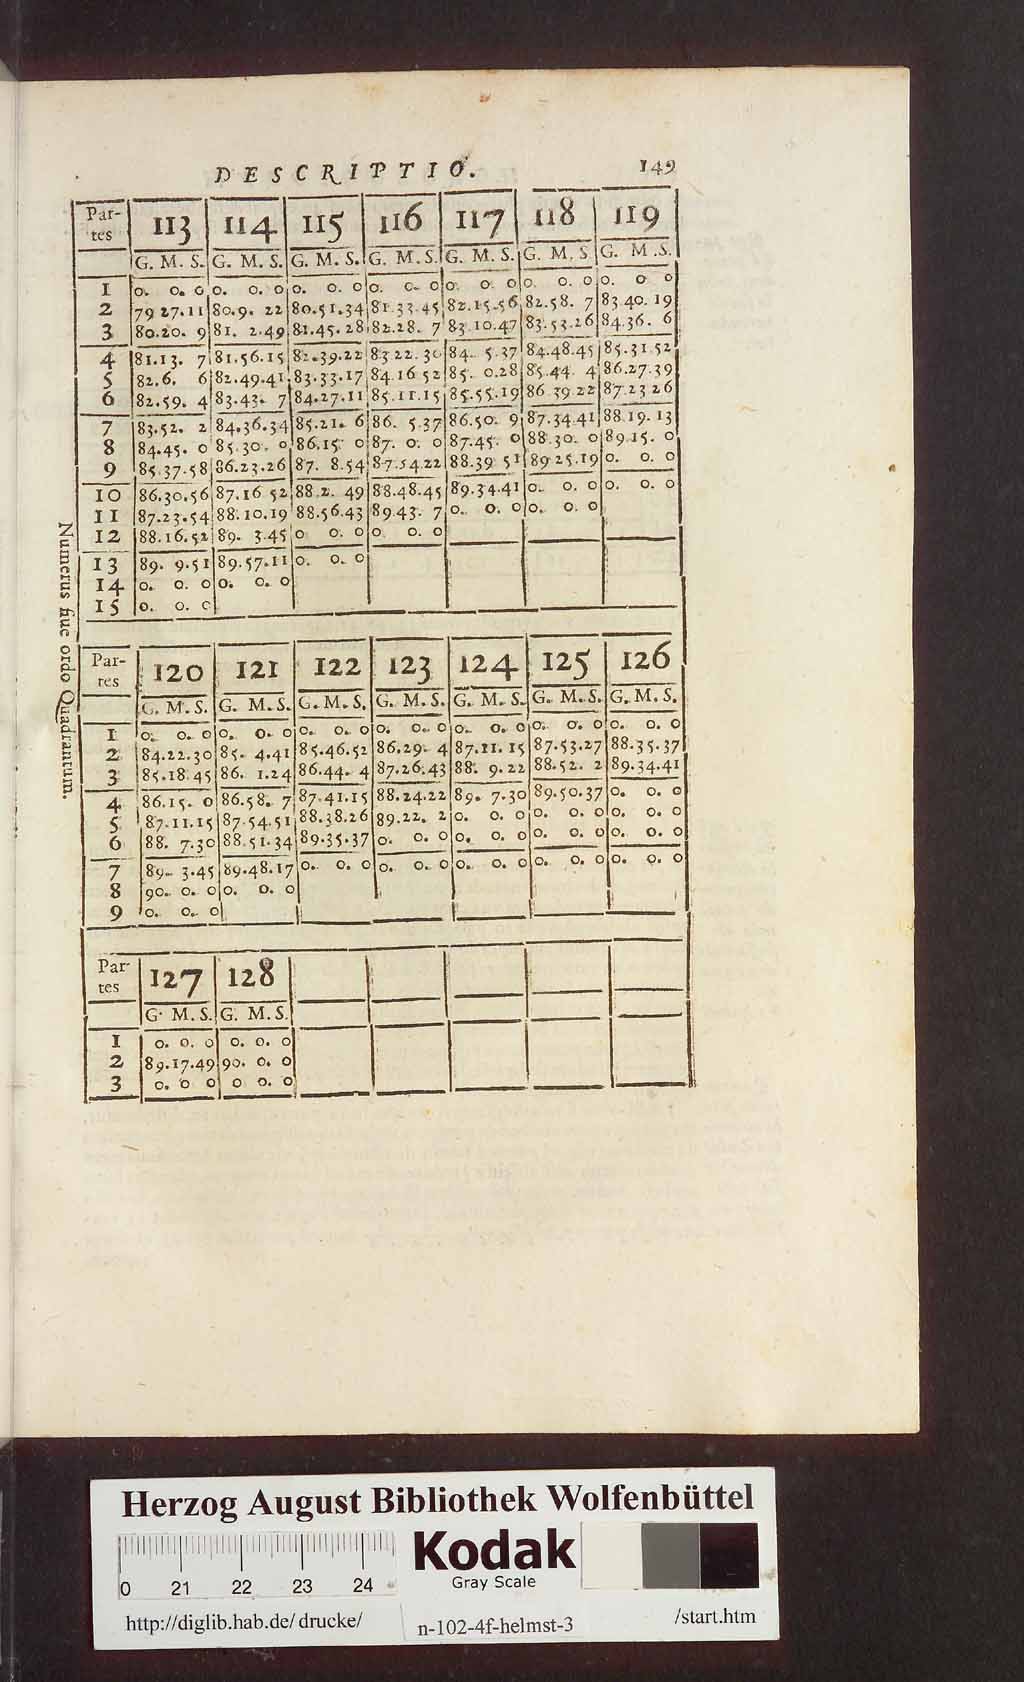 DESCRIPTIO. 149
Par-tes 113 114 115 116 117 118 119
G. M. S. G. M. S. G. M. S. G. M. S. G. M. S. G. M. S G. M .S.
1 0. 0. 0 0. 0. 0 0. 0. 0 0. 0. 0 0. 0. 0 0. 0. 0 0. 0 0
2 79 27.11 80.9. 22 80.51.34 81.33.45 82.15.56 82.58. 7 83 40. 19
3 80.20. 9 81. 2.49 81.45. 28 82.28. 7 83 10.47 83.53.26 84.36. 6
4 81.13. 7 81.56.15 82.39.22 83 22. 30 84. 5.37 84.48.45 85.31.52
5 82.6. 6 82.49.41 83.33.17 84.16 52 85. 0.28 85.44. 4 86.27.39
6 82.59. 4 83.43. 7 84.27.11 85.11.15 85.55.19 86 39.22 87.23 26
7 83.52. 2 84.36.34 85.21. 6 86. 5.37 86.50. 9 87.34.41 88.19. 13
8 84.45. 0 85.30. 0 86.15. 0 87. 0. 0 87.45. 0 88.30. 0 89.15. 0
9 85.37.58 86.23.26 87. 8.54 87.54.22 88.39 51 89 25.19 0. 0. 0
10 86.30.56 87.16 52 88.2. 49 88.48.45 89.34.41 0. 0. 0 0. 0. 0
11 87.23.54 88.10.19 88.56.43 89.43. 7 0. 0. 0 0. 0. 0
12 88.16.52 89. 3.45 0 0. 0 0. 0. 0
13 89. 9.51 89.57.11 0. 0. 0
14 0. 0. 0 0. 0. 0
15 0. 0. 0
Numerus siue ordo Quadrantum.
Par-tes 120 121 122 123 124 125 126
G. M. S. G. M. S. G. M. S. G. M. S. G. M. S. G. M. S. G. M. S.
1 0. 0. 0 0. 0. 0 0. 0. 0 0. 0. 0 0. 0. 0 0. 0. 0 0. 0. 0
2 84.22.30 85. 4.41 85.46.52 86.29. 4 87.11. 15 87.53.27 88.35.37
3 85.18.45 86. 1.24 86.44. 4 87.26.43 88. 9.22 88.52. 2 89.34.41
4 86.15. 0 86.58. 7 87.41.15 88.24.22 89. 7.30 89.50.37 0. 0. 0
5 87.11.15 87.54.51 88.38.26 89.22. 2 0. 0. 0 0. 0. 0 0. 0. 0
6 88. 7.30 88.51.34 89.35.37 0. 0. 0 0. 0. 0 0. 0. 0 0. 0. 0
7 89. 3.45 89.48.17 0. 0. 0 0. 0. 0 0. 0. 0 0. 0. 0 0. 0. 0
8 90. 0. 0 0. 0. 0
9 0. 0. 0
Par-tes 127 128
G. M. S. G. M. S.
1 0. 0. 0 0. 0. 0
2 89.17.49 90. 0. 0
3 0. 0 0 0 0. 0
Herzog August Bibliothek Wolfenbüttel
0 21 22 23 24
Kodak
Gray Scale
http://diglib.hab.de/drucke/ n-102-4f-helmst-3 /start.htm